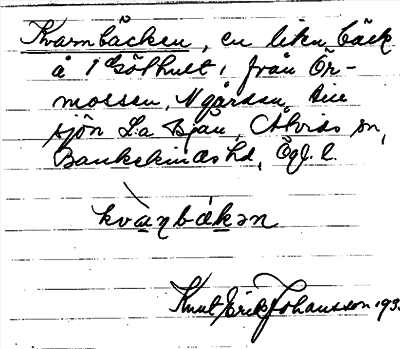 Kvarnbäcken, en liten bäck
å 1 Gölhult, från Ör-
mossen, N gården till
sjön L:a Bjän, Åtvids sn,
Bankekinds hd, Ögl. l.
kvàɳbäkən
Knut Erik Johansson 193